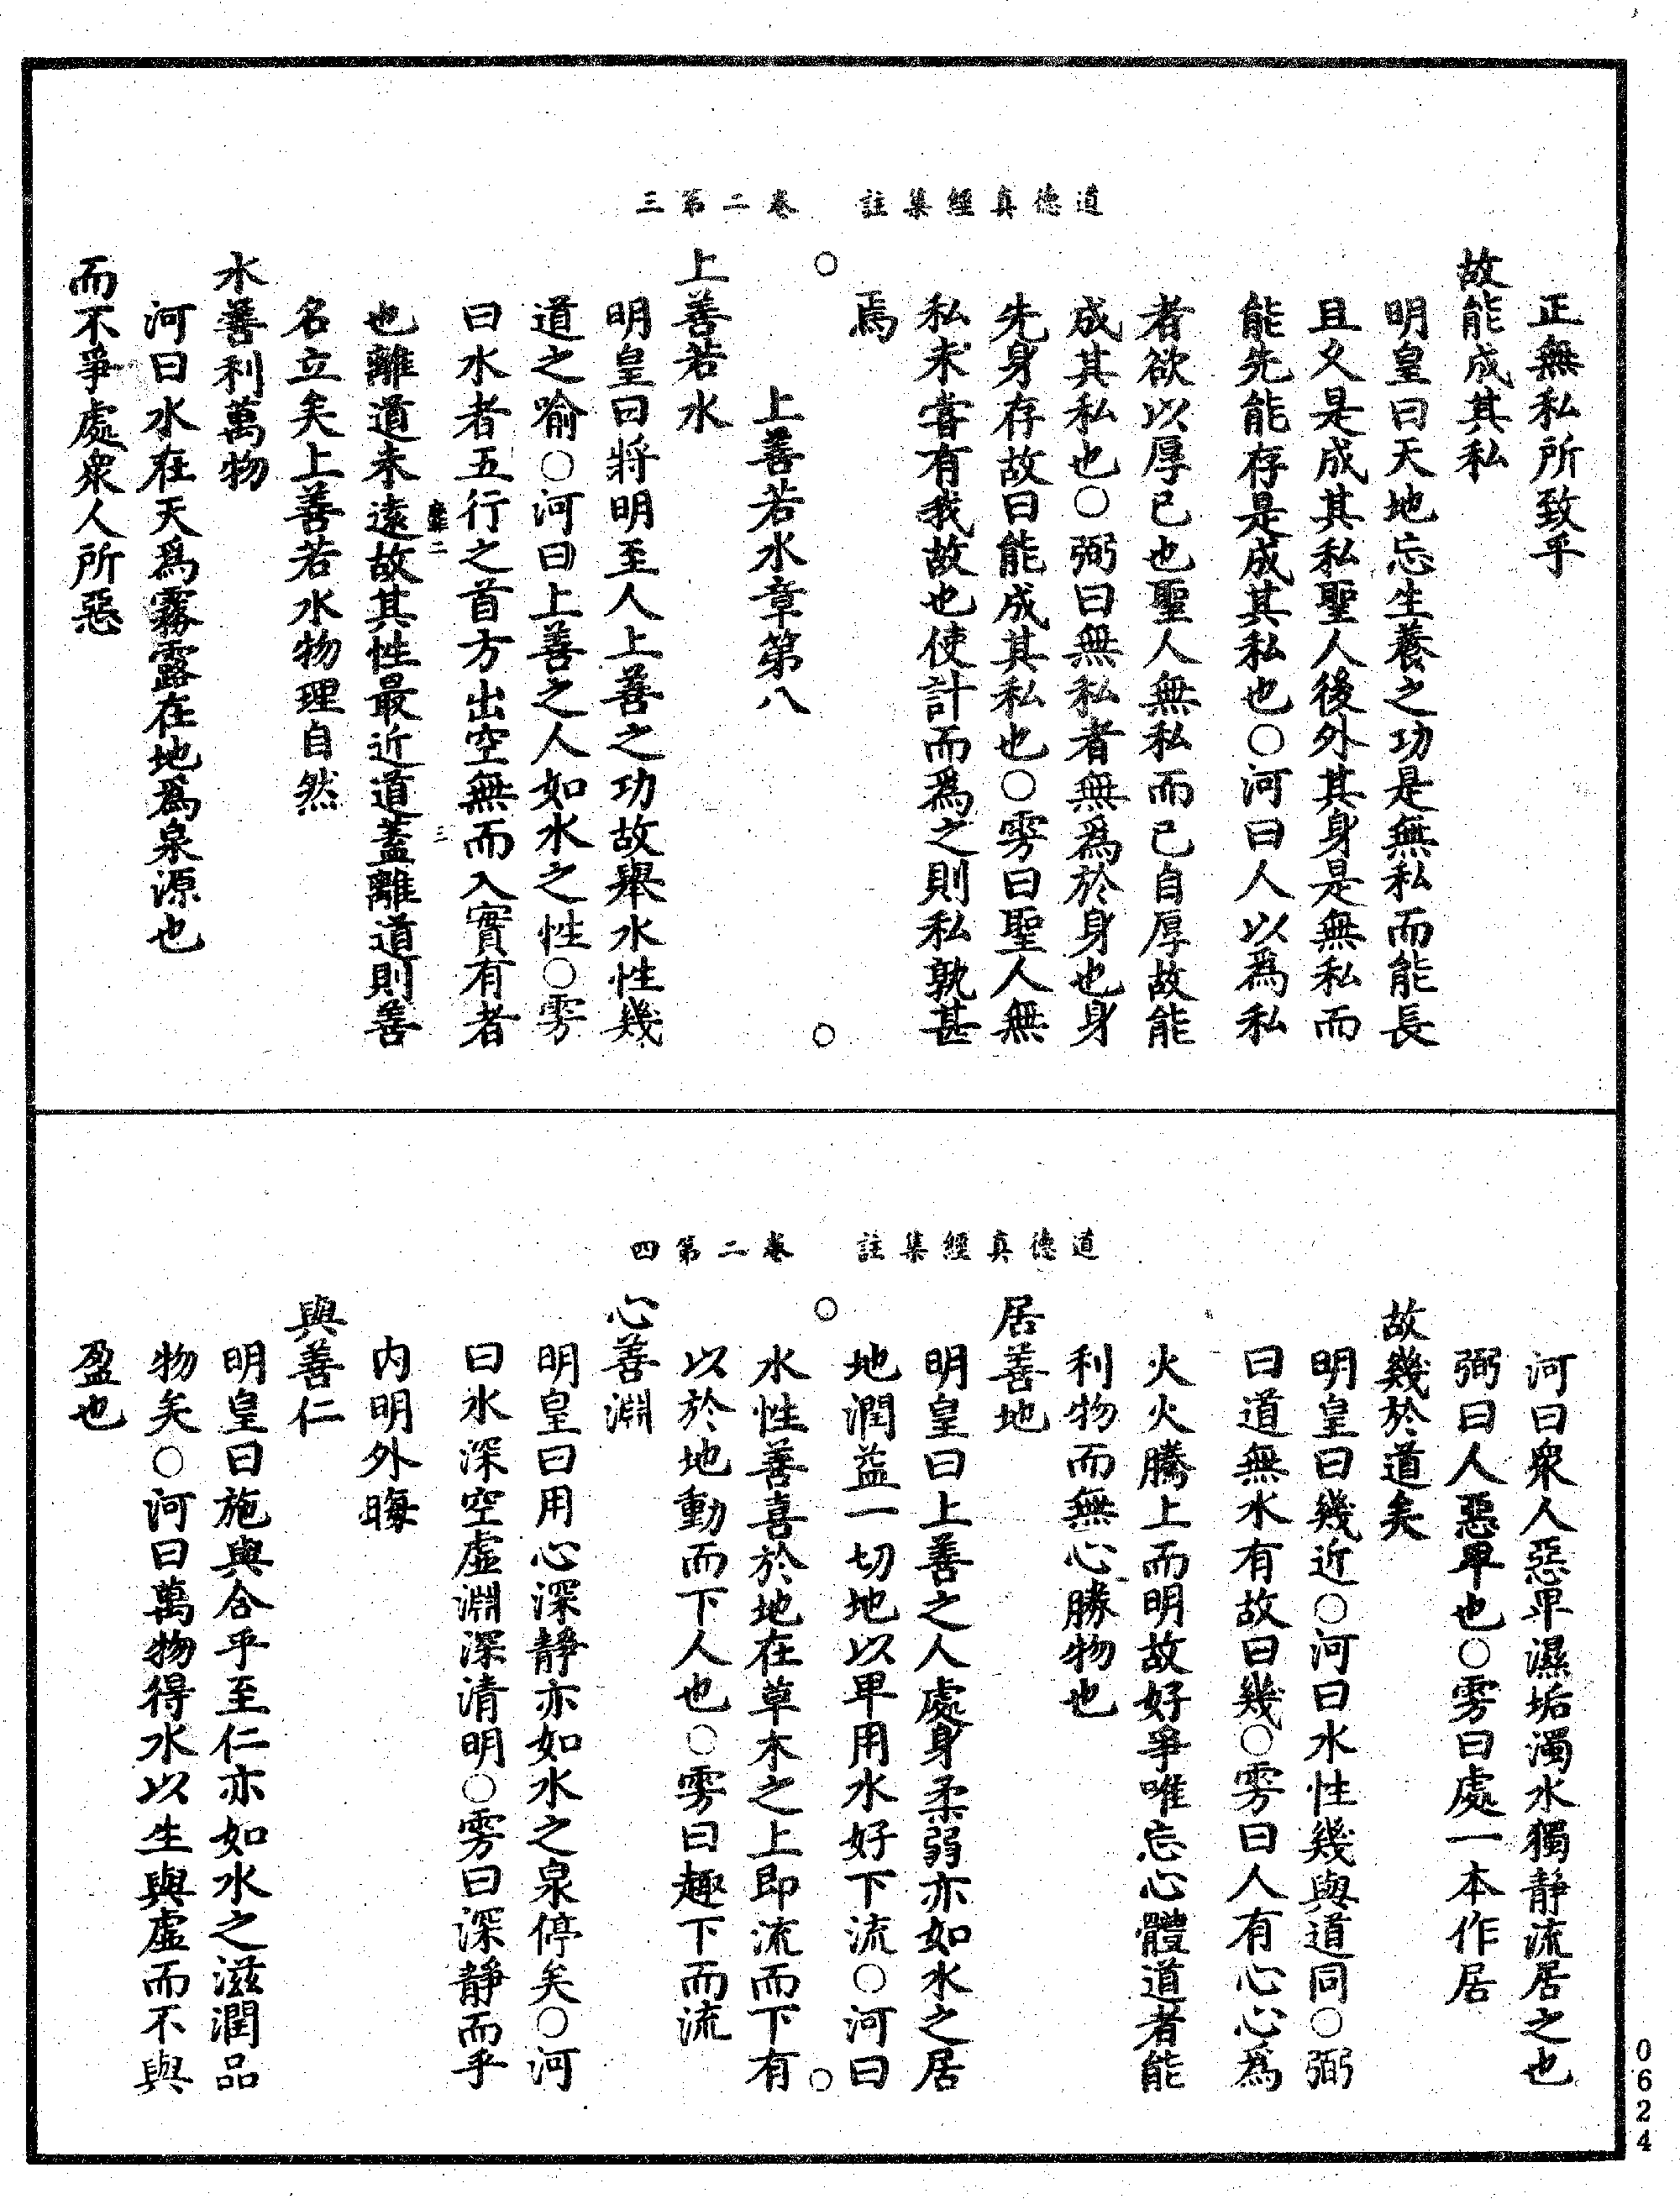 道德真經集註　卷二第三
正無私所致乎
故能成其私
明皇曰天地忘生養之功是無私而能長
且久是成其私聖人後外其身是無私而
能先能存是成其私也○河曰人以爲私
者欲以厚已也聖人無私而已自厚故能
成其私也○弼曰無私者無爲於身也身
先身存故曰能成其私也○雱曰聖人無
私未嘗有我故也使計而爲之則私孰甚
焉
○　○
上善若水章第八
上善若水
明皇曰將明至人上善之功故舉水性幾
道之喻○河曰上善之人如水之性○雱
曰水者五行之首方出空無而入實有者
三
也離道未遠故其性最近道蓋離道則善
名立矣上善若水物理自然
水善利萬物
河曰水在天爲霧露在地爲泉源也
而不爭處衆人所惡
道德真經集註　卷二第四
河曰衆人惡卑濕垢濁水獨靜流居之也
弼曰人惡卑也○雱曰處一本作居
故幾於道矣
明皇曰幾近○河曰水性幾與道同○弼
曰道無水有故曰幾○雱曰人有心心爲
火火騰上而明故好爭唯忘心體道者能
利物而無心勝物也
居善地
明皇曰上善之人處身柔弱亦如水之居
地潤益一切地以卑用水好下流○河曰
○　○
水性善喜於地在草木之上即流而下有
以於地動而下人也○雱曰趣下而流
心善淵
明皇曰用心深靜亦如水之泉停矣○河
曰水深空虛淵深清明○雱曰深靜而乎
内明外晦
與善仁
明皇曰施與合乎至仁亦如水之滋潤品
物矣○河曰萬物得水以生與虛而不與
盈也
0624